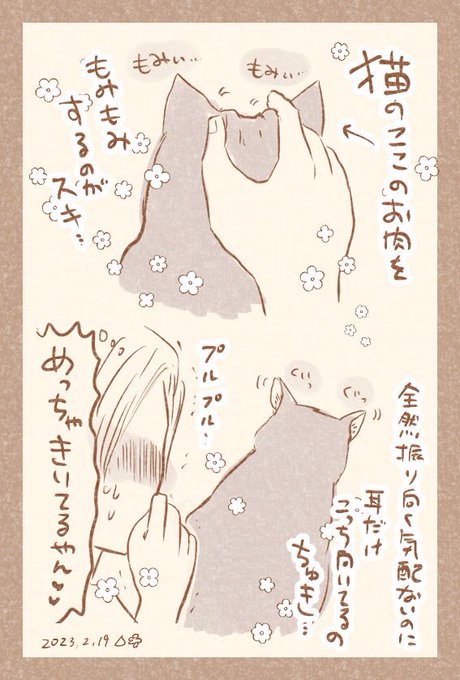 猫のここのお肉を
もみもみ
するのが
スキ…
もみぃ…
もみぃ…
全然振り向く気配ないのに
耳だけ
こっち向いてるの
ちゅき…
ぐいっ
ぐいっ
プルプル…
めっちゃきいてるやん♡♡
2023.2.19